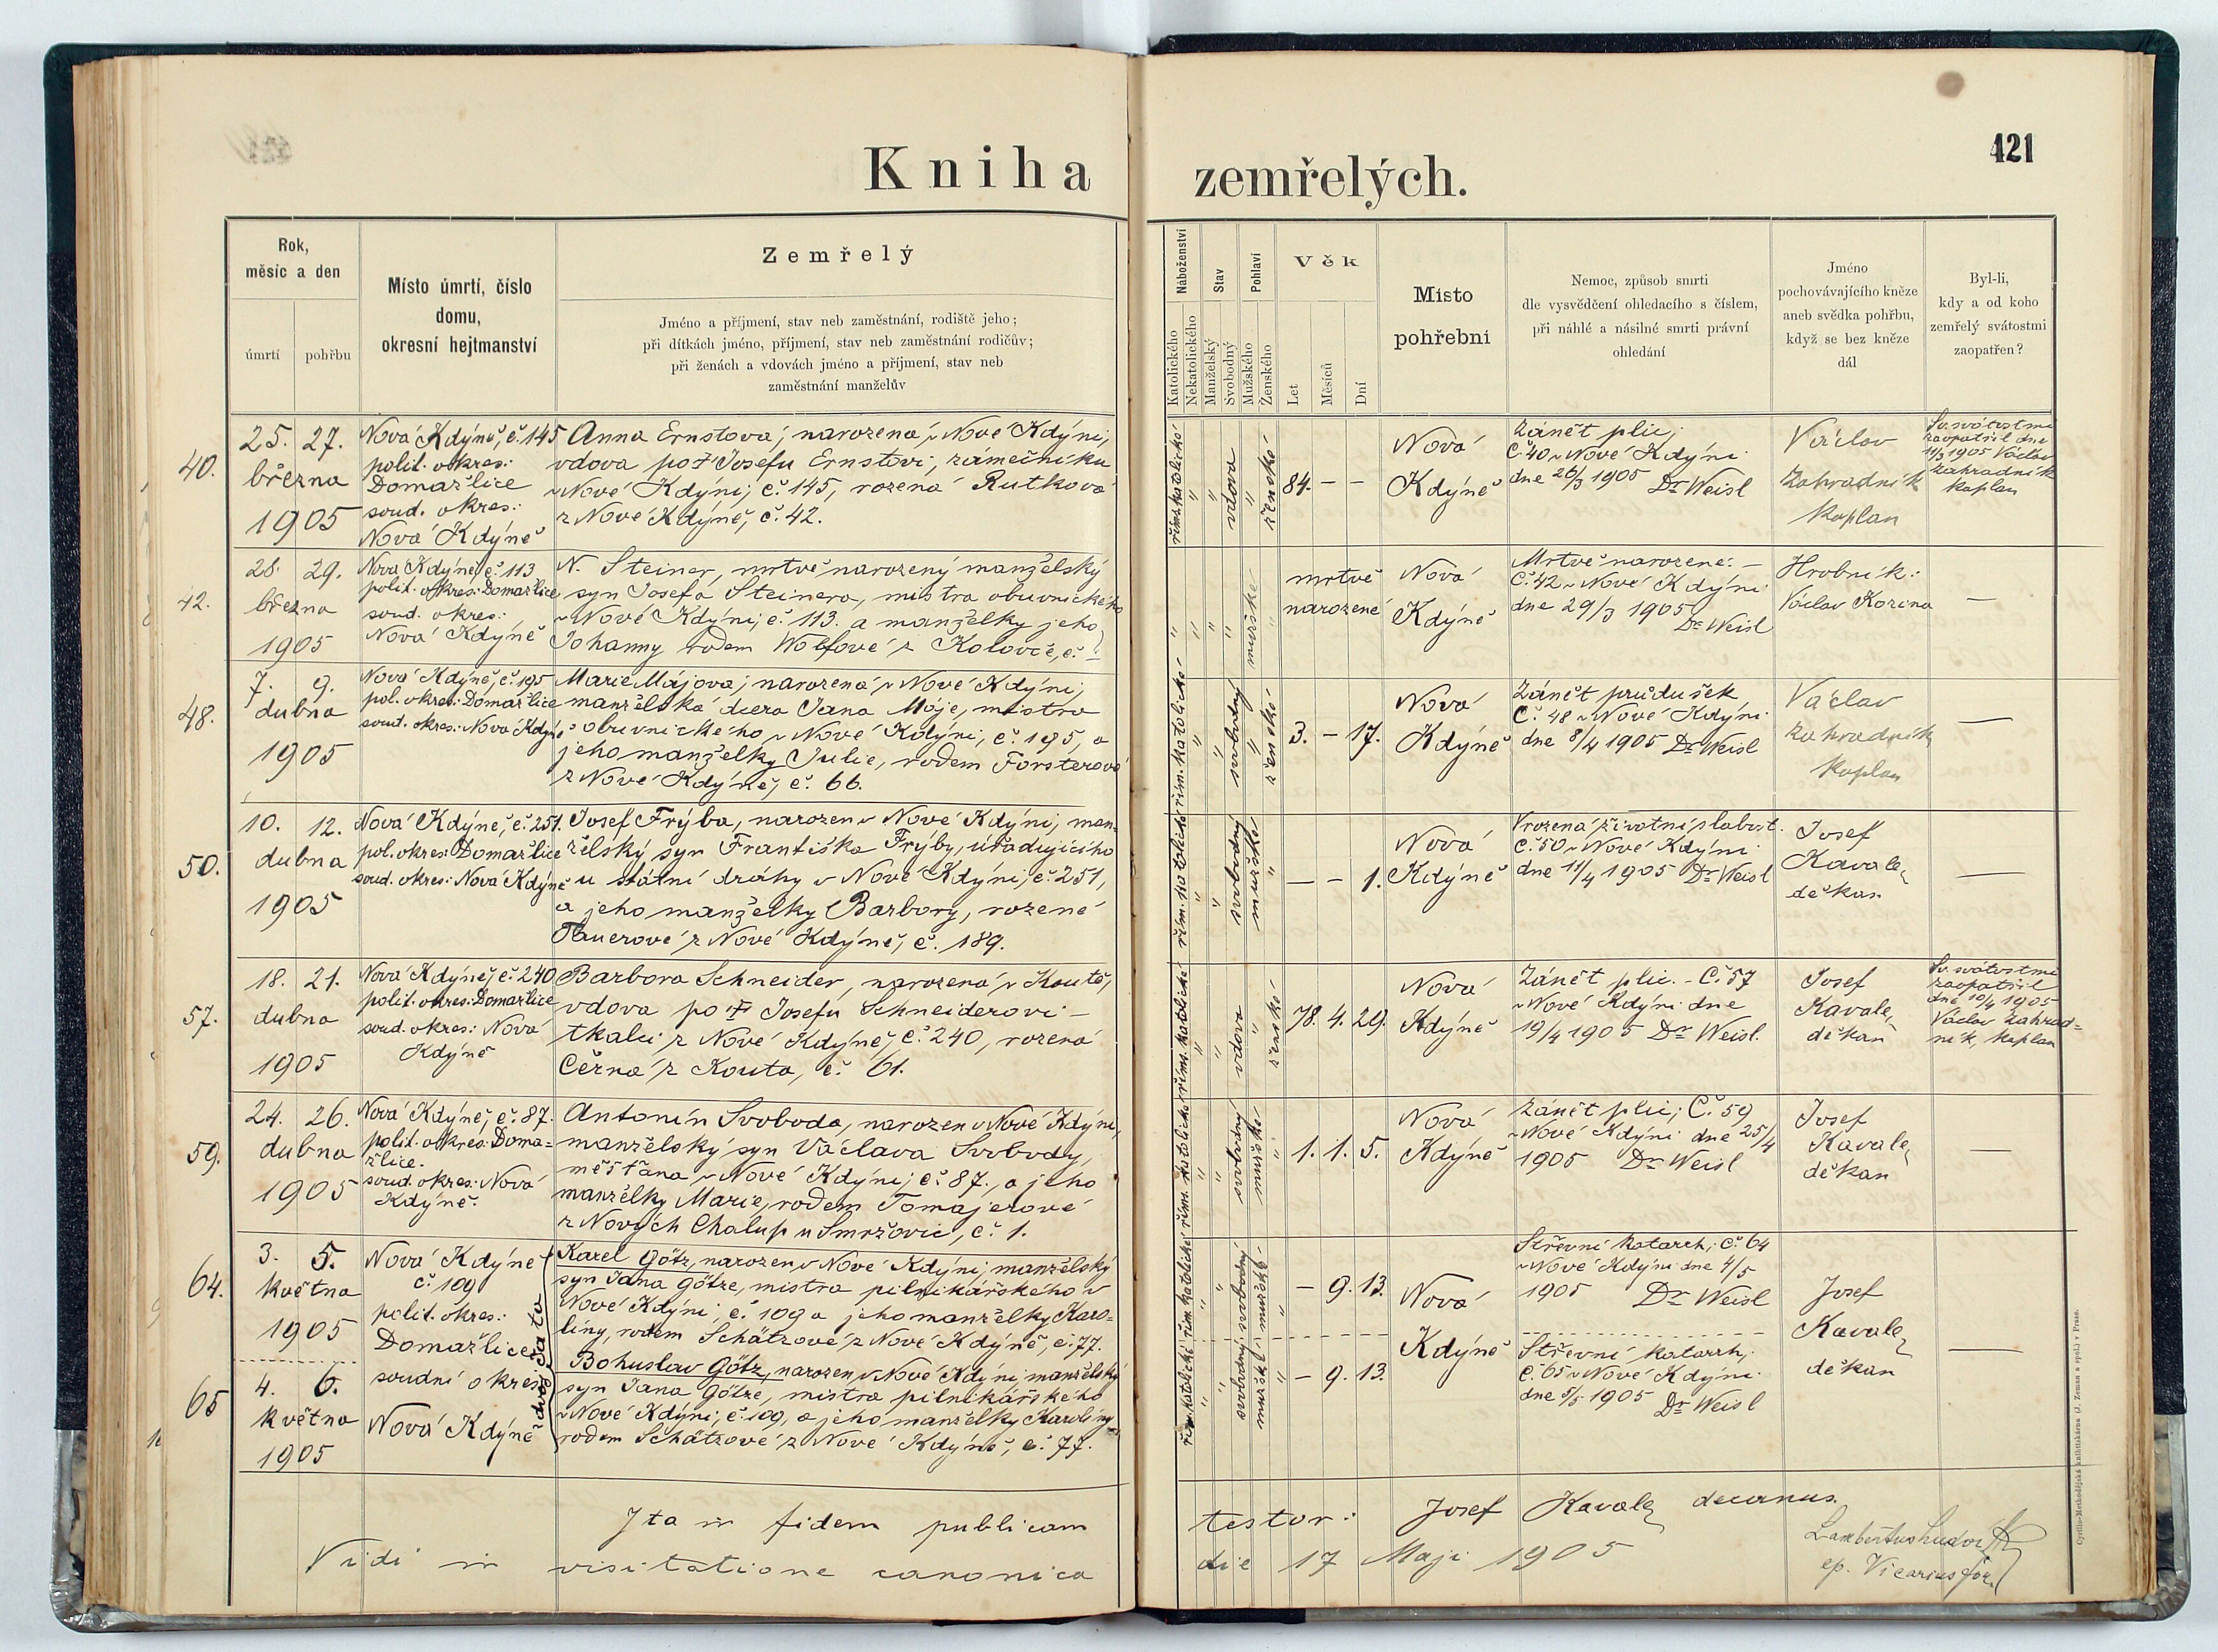 Kniha zemřelých.
421
Rok,
měsíc a den
úmrtí
pohřbu
Místo úmrtí, číslo
domu,
okresní hejtmanství
Zemřelý
Jméno a příjmení, stav neb zaměstnání, rodiště jeho;
při dítkách jméno, příjmení, stav neb zaměstnání rodičův;
při ženách a vdovách jméno a příjmení, stav neb
zaměstnání manželův
Náboženství
Katolického
Nekatolického
Stav
Manželský
Svobodný
Pohlaví
Mužského
Ženského
Věk
Let
Měsíců
Dní
Místo
pohřební
Nemoc, způsob smrti
dle vysvědčení ohledacího s číslem,
při náhlé a násilné smrti právní
ohledání
Jméno
pochovávajícího kněze
aneb svědka pohřbu,
když se bez kněze
dál
Byl-li,
kdy a od koho
zemřelý svátostmi
zaopatřen?
40.
25. 27.
března
1905
Nová Kdýně, č. 145
polit. okres:
Domažlice
soud. okres:
Nová Kdýně
Anna Ernstová, narozená v Nové Kdýni,
vdova po † Josefu Ernstovi, zámečníku
v Nové Kdýni, č. 145, rozená Rutková
z Nové Kdýně, č. 42.
římskokatolické
" "
vdova
"
ženské
84. – –
Nová
Kdýně
Zánět plic,
Č. 40 v Nové Kdýni
dne 26/3 1905 Dr Weisl
Václav
Zahradník
kaplan
Sv. svátostmi
zaopatřil dne
11/3 1905 Václav
Zahradník
kaplan
42.
28. 29.
března
1905
Nová Kdýně, č. 113
polit. okres: Domažlice
soud. okres:
Nová Kdýně
N. Steiner, mrtvě narozený manželský
syn Josefa Steinera, mistra obuvnického
v Nové Kdýni, č. 113. a manželky jeho
Johanny rodem Wolfové z Kolovče, č. –
" " " "
mužské
"
mrtvě
narozené
Nová
Kdýně
Mrtvě narozené. –
Č. 42 v Nové Kdýni
dne 29/3 1905
Dr Weisl
Hrobník:
Václav Kozina
—
48.
7. 9.
dubna
1905
Nová Kdýně, č. 195
pol. okres: Domažlice
soud. okres: Nová Kdýně
Marie Májová, narozená v Nové Kdýni,
manželská dcera Jana Máje, mistra
obuvnického v Nové Kdýni, č. 195, a
jeho manželky Julie, rodem Forsterové
z Nové Kdýně, č. 66.
řím. katolické
" "
svobodný
"
ženské
3. – 17.
Nová
Kdýně
Zánět průdušek
Č. 48 v Nové Kdýni
dne 8/4 1905 Dr Weisl
Václav
Zahradník
kaplan
—
50.
10. 12.
dubna
1905
Nová Kdýně, č. 251.
pol. okres: Domažlice
soud. okres: Nová Kdýně
Josef Frýba, narozen v Nové Kdýni, man-
želský syn Františka Frýby, úřadujícího
u státní dráhy v Nové Kdýni, č. 251,
a jeho manželky Barbory, rozené
Tauerové z Nové Kdýně, č. 189.
řím. katolické
" "
svobodný
mužské
"
– – 1.
Nová
Kdýně
Vrozená životní slabost.
Č. 50 v Nové Kdýni
dne 11/4 1905 Dr Weisl
Josef
Kavale,
děkan
—
57.
18. 21.
dubna
1905
Nová Kdýně, č. 240
polit. okres: Domažlice
soud. okres: Nová
Kdýně
Barbora Schneider, narozená v Koutě,
vdova po † Josefu Schneiderovi –
tkalci z Nové Kdýně, č. 240, rozená
Černá z Kouta, č. 61.
řím. katolické
" "
vdova
"
ženské
78. 4. 29.
Nová
Kdýně
Zánět plic. – Č. 57
v Nové Kdýni dne
19/4 1905 Dr Weisl.
Josef
Kavale,
děkan
Sv. svátostmi
zaopatřil
dne 10/4 1905
Václav Zahrad=
ník, kaplan
59.
24. 26.
dubna
1905
Nová Kdýně, č. 87.
polit. okres: Doma=
žlice.
soud. okres: Nová
Kdýně.
Antonín Svoboda, narozen v Nové Kdýni,
manželský syn Václava Svobody,
měšťana v Nové Kdýni, č. 87., a jeho
manželky Marie, rodem Tomajerové
z Nových Chalup u Smržovic, č. 1.
řím. katolické
" "
svobodný
mužské
"
1. 1. 5.
Nová
Kdýně
Zánět plic, Č. 59
v Nové Kdýni dne 25/4
1905 Dr Weisl
Josef
Kavale,
děkan
—
64.
3. 5.
května
1905
Nová Kdýně
č. 109
polit. okres:
Domažlice
soudní okres
Nová Kdýně
dvojčata
Karel Götz, narozen v Nové Kdýni, manželský
syn Jana Götze, mistra pilníkářského v
Nové Kdýni, č. 109 a jeho manželky Karo=
líny, rodem Schätzové z Nové Kdýně, č. 77.
řím. katolické
" "
svobodný
mužské
"
– 9. 13.
Nová
Kdýně
Střevní katarrh, č. 64
v Nové Kdýni dne 4/5
1905 Dr Weisl
Josef
Kavale,
děkan
—
65
4. 6.
května
1905
Bohuslav Götz, narozen v Nové Kdýni, manželský
syn Jana Götze, mistra pilníkářského
v Nové Kdýni, č. 109, a jeho manželky Karolíny
rodem Schätzové z Nové Kdýně, č. 77.
řím. katolické
" "
svobodný
mužské
"
– 9. 13.
Střevní katarrh,
č. 65 v Nové Kdýni
dne 5/5 1905
Dr Weisl
Ita in fidem publicam testor: Josef Kavale decanus.
Vidi in visitatione canonica die 17 Maji 1905
ep. Vicarius for.
Cyrillo-Methodějská knihtiskárna (J. Zeman a spol.) v Praze.